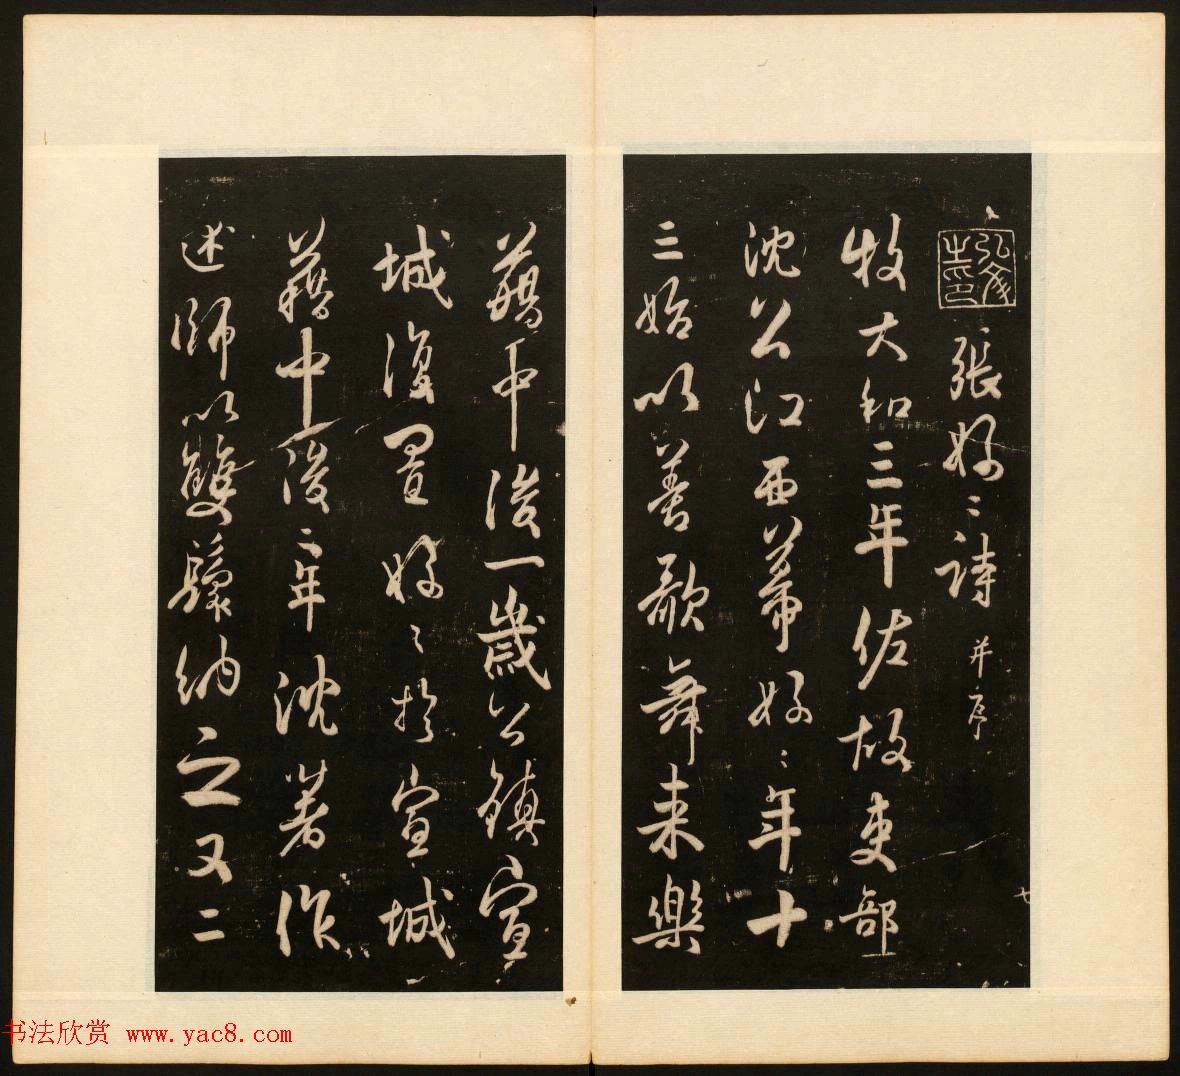 張好〻詩 并序
牧大和三年佐故吏部
沈公江西幕好〻年十
三始以善歌舞来樂
籍中後一歳公鎮宣
城復置好〻於宣城
籍中後二年沈著作
述師以雙鬟納之又二
书法欣赏 www.yac8.com